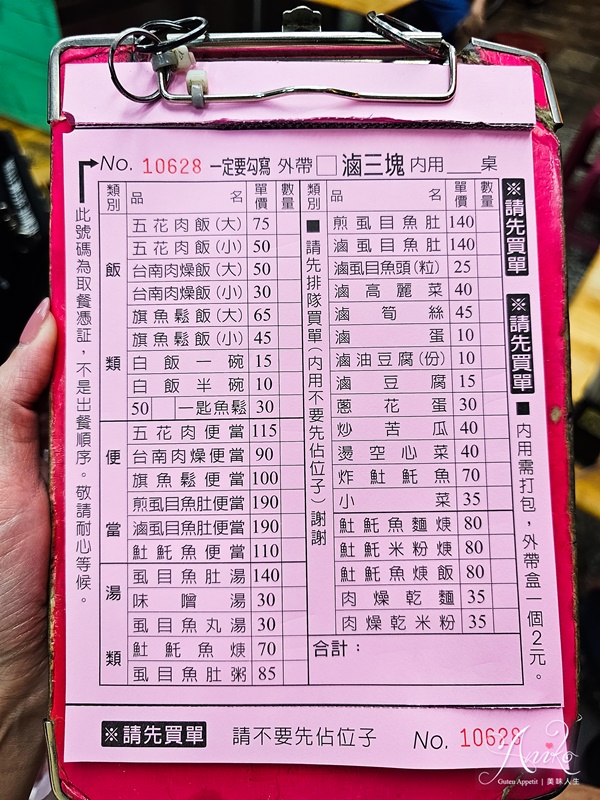 No. 10628 一定要勾寫 外帶□ 滷三塊 內用 桌
此號碼為取餐憑証，不是出餐順序。敬請耐心等候。
類別 品名 單價 數量
飯類
五花肉飯(大) 75
五花肉飯(小) 50
台南肉燥飯(大) 50
台南肉燥飯(小) 30
旗魚鬆飯(大) 65
旗魚鬆飯(小) 45
白飯一碗 15
白飯半碗 10
50 一匙魚鬆 30
便當
五花肉便當 115
台南肉燥便當 90
旗魚鬆便當 100
煎虱目魚肚便當 190
滷虱目魚肚便當 190
𩵚魠魚便當 110
湯類
虱目魚肚湯 140
味噌湯 30
虱目魚丸湯 30
𩵚魠魚焿 70
虱目魚肚粥 85
類別 品名 單價 數量
■請先排隊買單(內用不要先佔位子)謝謝
煎虱目魚肚 140
滷虱目魚肚 140
滷虱目魚頭(粒) 25
滷高麗菜 40
滷筍絲 45
滷蛋 10
滷油豆腐(份) 10
滷豆腐 15
蔥花蛋 30
炒苦瓜 40
燙空心菜 40
炸𩵚魠魚 70
小菜 35
𩵚魠魚麵焿 80
𩵚魠米粉焿 80
𩵚魠魚焿飯 80
肉燥乾麵 35
肉燥乾米粉 35
合計：
※請先買單
※請先買單
■內用需打包，外帶盒一個2元。
※請先買單 請不要先佔位子 No. 10628
Aniko
Guten Appetit | 美味人生